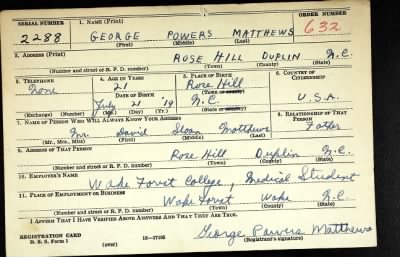 SERIAL NUMBER
1. NAME (Print)
ORDER NUMBER
2288
GEORGE POWERS MATTHEWS
632
(First) (Middle) (Last)
2. ADDRESS (Print)
ROSE HILL DUPLIN N.C.
(Number and street or R. F. D. number) (Town) (County) (State)
3. TELEPHONE
4. AGE IN YEARS
5. PLACE OF BIRTH
6. COUNTRY OF CITIZENSHIP
None
21
Rose Hill
DATE OF BIRTH
(Town or county)
July 21 '19
N.C.
U.S.A.
(Exchange) (Number)
(Mo.) (Day) (Yr.)
(State or country)
7. NAME OF PERSON WHO WILL ALWAYS KNOW YOUR ADDRESS
8. RELATIONSHIP OF THAT PERSON
Mr. David Sloan Matthews
Father
(Mr., Mrs., Miss) (First) (Middle) (Last)
9. ADDRESS OF THAT PERSON
Rose Hill Duplin N.C.
(Number and street or R. F. D. number) (Town) (County) (State)
10. EMPLOYER'S NAME
Wake Forest College, Medical Student
11. PLACE OF EMPLOYMENT OR BUSINESS
Wake Forest Wake N.C.
(Number and street or R. F. D. number) (Town) (County) (State)
I AFFIRM THAT I HAVE VERIFIED ABOVE ANSWERS AND THAT THEY ARE TRUE.
REGISTRATION CARD
D. S. S. Form 1 (over) 16-17105
George Powers Matthews
(Registrant's signature)